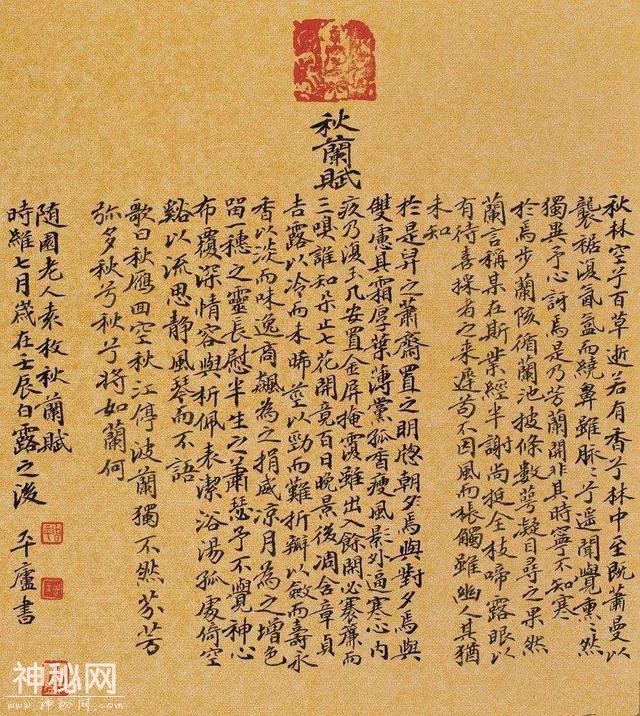 秋蘭賦
秋林空兮百草逝若有香兮林中至既蕭曼以
襲裾復氤氳而繞鼻雖脈々兮遥聞覺熏々然
獨異予心訝焉是乃芳蘭開非其時寧不知寒
於焉步蘭陔循蘭池披條數萼凝目尋之果然
蘭言稱某在斯業經半謝尚挺全枝啼露眼以
有待喜採者之来遲苟不因風而棖觸雖幽人其猶
未知
於是舁之蕭齋置之明窓朝夕焉與對夕焉與
雙慮其霜厚葉薄黨孤香瘦風影外逼寒心内
疚乃復玉几安置金屏掩覆雖出入餘閒必褰簾而
三嗅誰知朵止七花開竟百日晚景後凋含章貞
吉露以冷而未晞莖以勁而難折瓣以斂而壽永
香以淡而味逸商飆為之捐盛凉月為之增色
留一穗之靈長慰半生之蕭瑟予不覺神心
布覆深情容與析佩表潔浴湯孤處倚空
谿以流思静風琴而不語
歌曰秋雁回空秋江停波蘭獨不然芬芳
弥多秋兮秋兮將如蘭何
随園老人袁枚秋蘭賦
時維七月歲在壬辰白露之後 平廬書
神秘网
www.神秘网.com